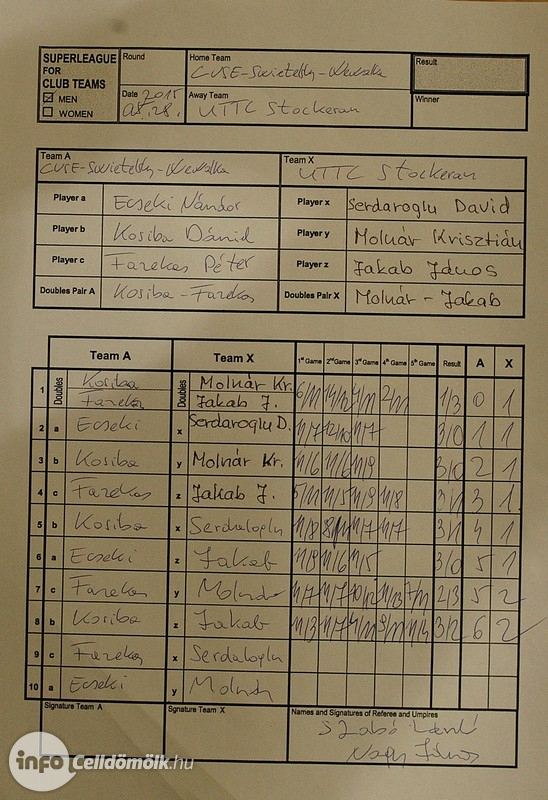 SUPERLEAGUE FOR CLUB TEAMS
MEN
WOMEN
Round
Home Team
Result
Date 2015 08. 28.
Away Team
UTTC Stockerau
Winner
Team A
Team X
UTTC Stockerau
Player a Ecseki Nándor
Player x Serdaroglu David
Player b Kosiba Dániel
Player y Molnár Krisztián
Player c Fazekas Péter
Player z Jakab János
Doubles Pair A Kosiba - Fazekas
Doubles Pair X Molnár - Jakab
Team A Team X 1st Game 2nd Game 3rd Game 4th Game 5th Game Result A X
1 Doubles Kosiba Fazekas Doubles Molnár Kr. Jakab J. 6/11 14/12 4/11 2/11 1/3 0 1
2 a Ecseki x Serdaroglu D. 11/7 12/10 11/7 3/0 1 1
3 b Kosiba y Molnár Kr. 11/6 11/6 11/9 3/0 2 1
4 c Fazekas z Jakab J. 5/11 11/5 11/9 11/8 3/1 3 1
5 b Kosiba x Serdaroglu 11/8 8/11 11/7 11/7 3/1 4 1
6 a Ecseki z Jakab 11/8 11/6 11/5 3/0 5 1
7 c Fazekas y Molnár 11/7 11/7 10/12 11/13 7/11 2/3 5 2
8 b Kosiba z Jakab 11/3 11/7 4/11 9/11 3/2 6 2
9 c Fazekas x Serdaroglu
10 a Ecseki y Molnár
Signature Team A
Signature Team X
Names and Signatures of Referee and Umpires
Szabó László
Nagy János
info Celldömölk.hu